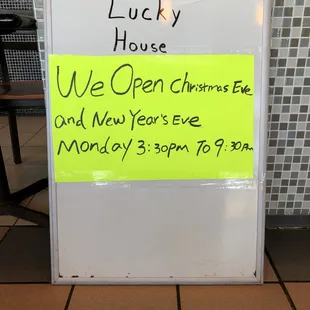 Lucky
House
We Open Christmas Eve
and New Year's Eve
Monday 3:30pm To 9:30Pm